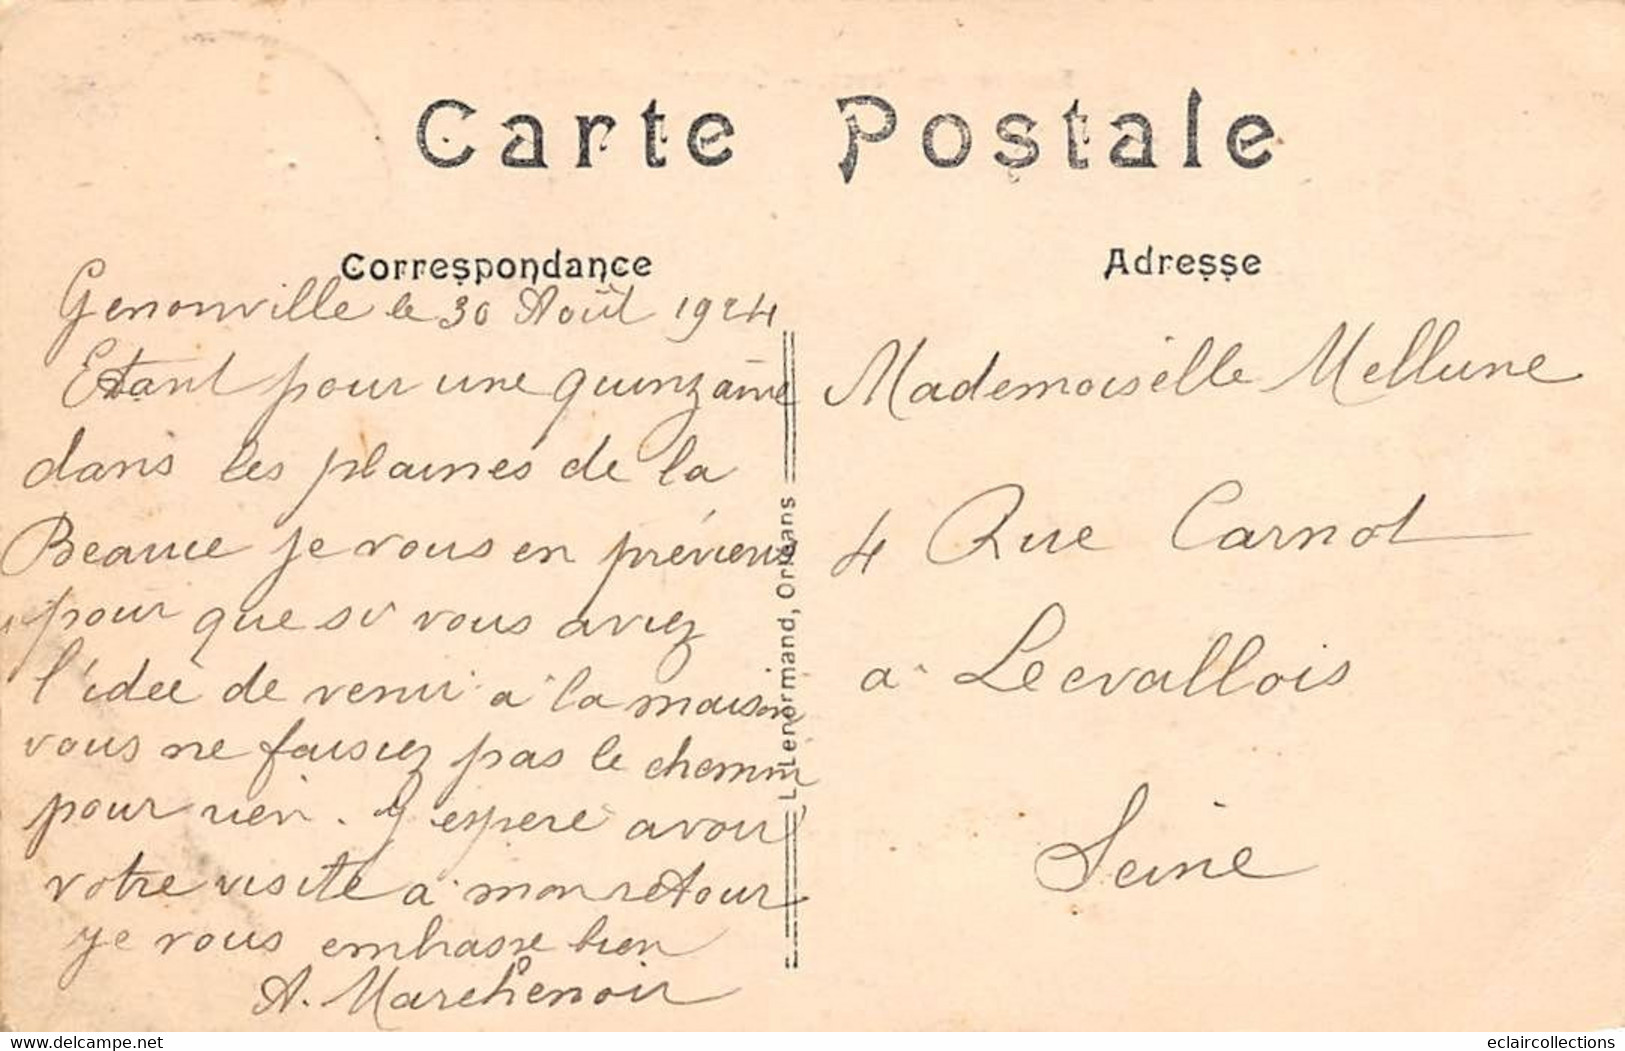 Carte Postale
Correspondance
Genonville le 30 Août 1924
Etant pour une quinzaine
dans les plaines de la
Beauce je vous en préviens
pour que si vous aviez
l'idée de venir à la maison
vous ne fassiez pas le chemin
pour rien. J'espere avoir
votre visite a mon retour
je vous embrasse bien
A. Marchenoir
L. Lenormand, Orléans
Adresse
Mademoiselle Mellune
4 Rue Carnot
a Leevallois
Seine
www.delcampe.net
eclaircollections